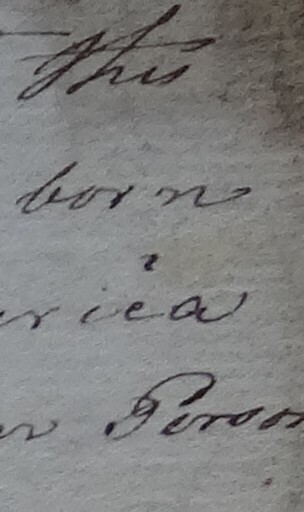 this
born
erica
er Person